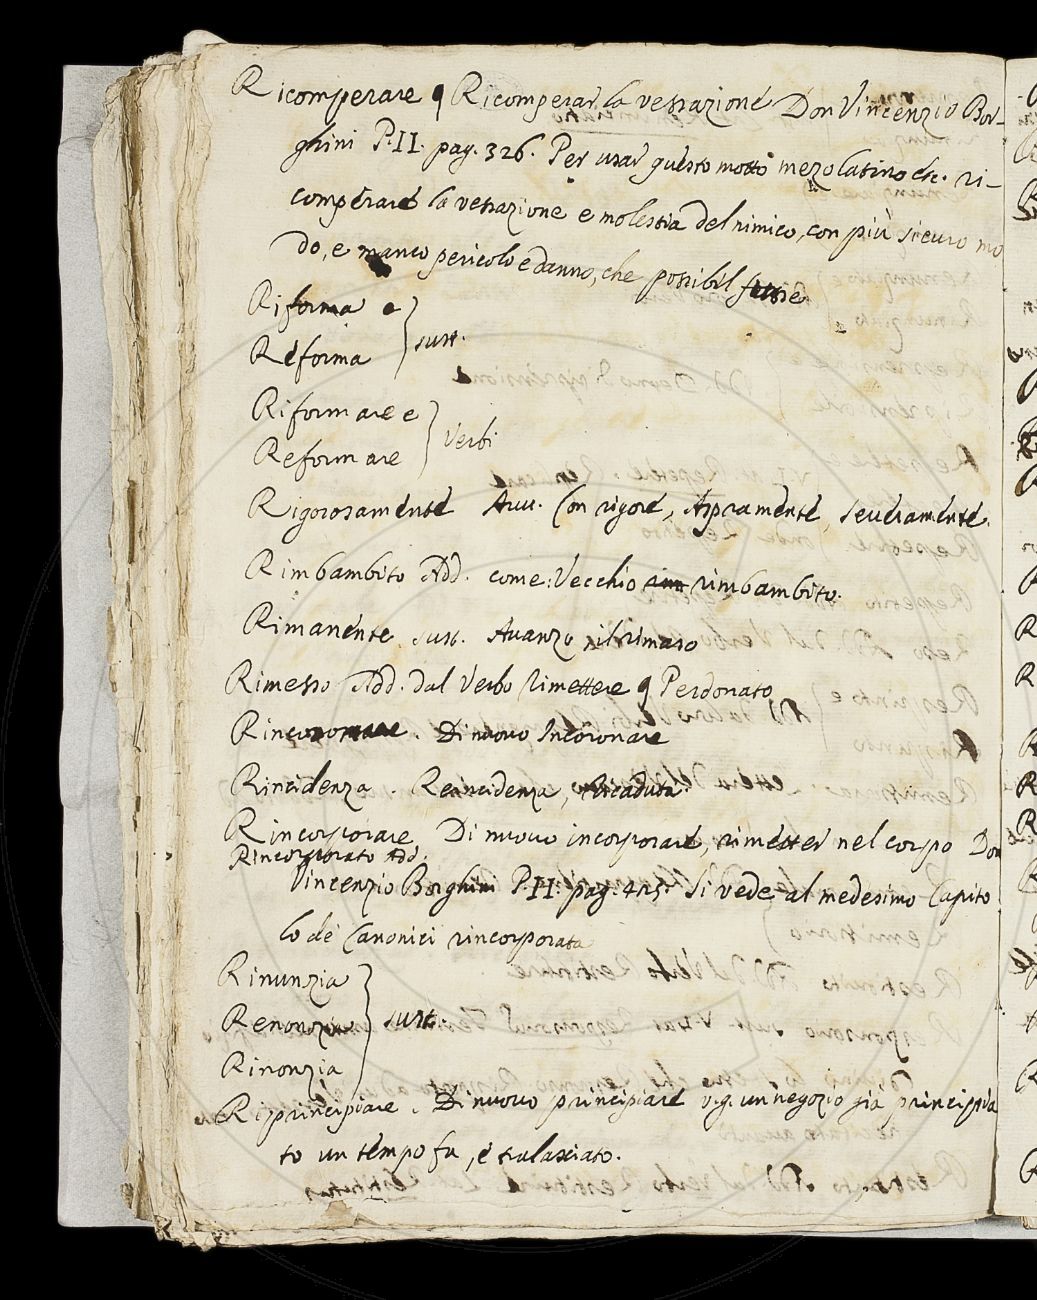 Ricomperare q Ricomperar la vessazione Don Vincenzio Bor-
ghini P. II. pag. 326. Per usar questo motto mezo latino etc. ri-
comperare la vessazione e molestia del nimico, con più sicuro mo
do, e manco pericolo e danno, che possibil fusse
Riforma e
Reforma } sust.
Riformare e
Reformare } Verbi
Rigorosamente Auu. Con rigore, Aspramente, seueramente.
Rimbambito Add. come: Vecchio rimbambito.
Rimanente sust. Auanzo, il rimaso
Rimesso Add. dal Verbo rimettere q Perdonato
Rincoronare. Di nuouo Incoronare
Rincidenza. Reincidenza, Ricaduta.
Rincorporare, Di nuouo incorporare, rimetter nel corpo Don
Rincorporato Add.
Vincenzio Borghini P. II. pag. Si vede al medesimo Capito
lo de Canonici rincorporata
Rinunzia
Renonzia } sust.
Rinonzia
Riprincipiare. Di nuouo principiare v.g. un negozio già principia
to un tempo fu, e tralasciato.